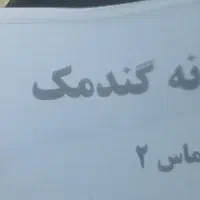 نه گندمک
ماس ۲